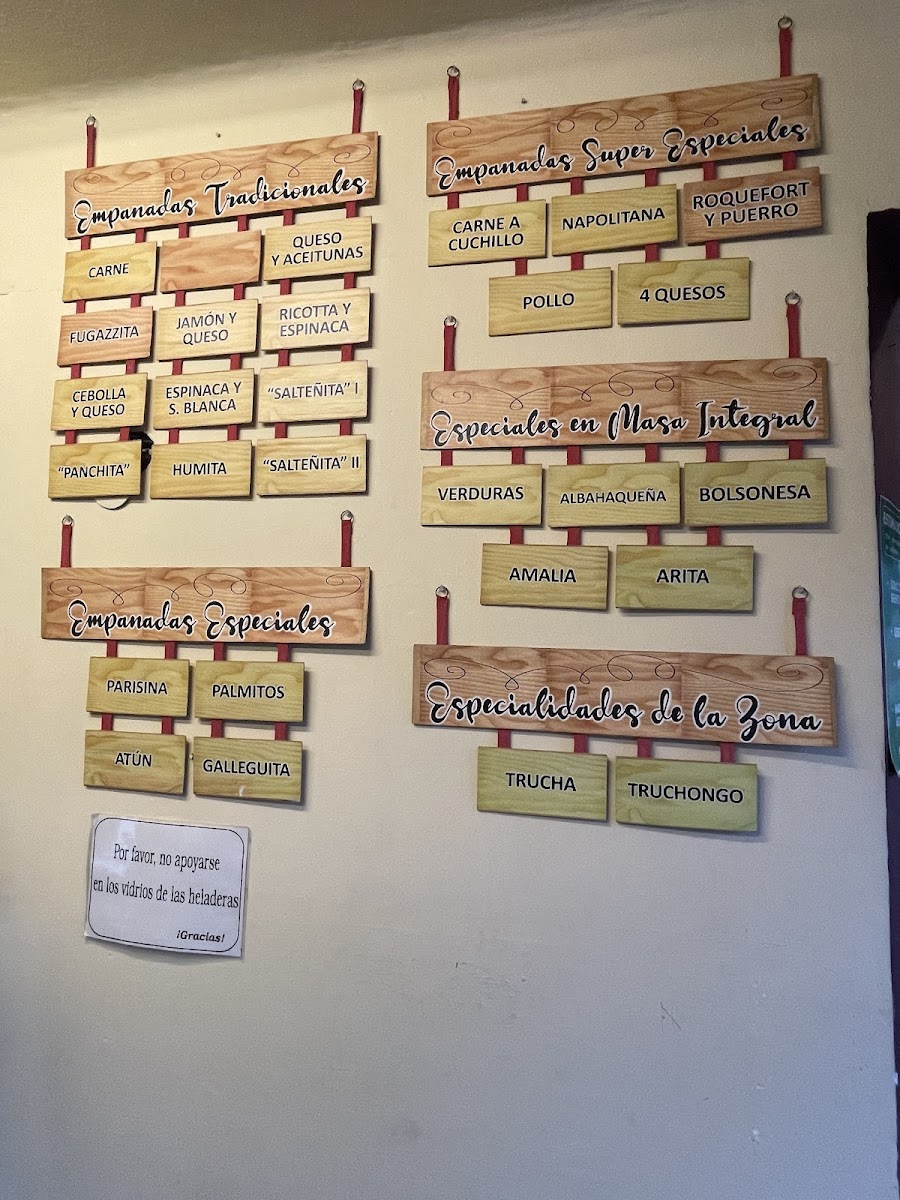 Empanadas Tradicionales
CARNE
QUESO
Y ACEITUNAS
FUGAZZITA
JAMÓN Y
QUESO
RICOTTA Y
ESPINACA
CEBOLLA
Y QUESO
ESPINACA Y
S. BLANCA
"SALTEÑITA" I
"PANCHITA"
HUMITA
"SALTEÑITA" II
Empanadas Especiales
PARISINA
PALMITOS
ATÚN
GALLEGUITA
Por favor, no apoyarse
en los vidrios de las heladeras
¡Gracias!
Empanadas Super Especiales
CARNE A
CUCHILLO
NAPOLITANA
ROQUEFORT
Y PUERRO
POLLO
4 QUESOS
Especiales en Masa Integral
VERDURAS
ALBAHAQUEÑA
BOLSONESA
AMALIA
ARITA
Especialidades de la Zona
TRUCHA
TRUCHONGO